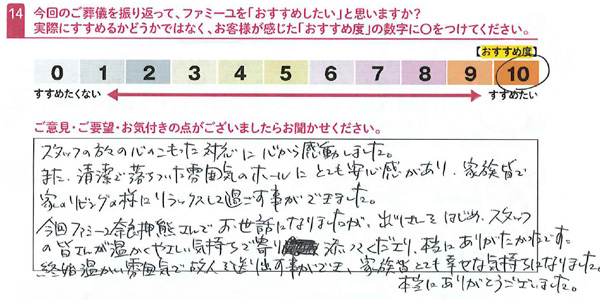 14 今回のご葬儀を振り返って、ファミーユを「おすすめしたい」と思いますか？
実際にすすめるかどうかではなく、お客様が感じた「おすすめ度」の数字に○をつけてください。
【おすすめ度】
0 1 2 3 4 5 6 7 8 9 10
すすめたくない すすめたい
ご意見・ご要望・お気付きの点がございましたらお聞かせください。
スタッフの方の心のこもった対応に心から感動しました。
また、清潔で落ちついた雰囲気のホールにとても安心感があり、家族皆で
家のリビングの様にリラックスして過ごす事ができました。
今回ファミーユ奈良押熊さんでお世話になりましたが、をはじめ、スタッフ
の皆さんが温かくやさしい気持ちで寄り添ってくださり、本当にありがたかったです。
終始温かい雰囲気で故人を送り出す事ができ、家族皆とても幸せな気持ちになりました。
本当にありがとうございました。